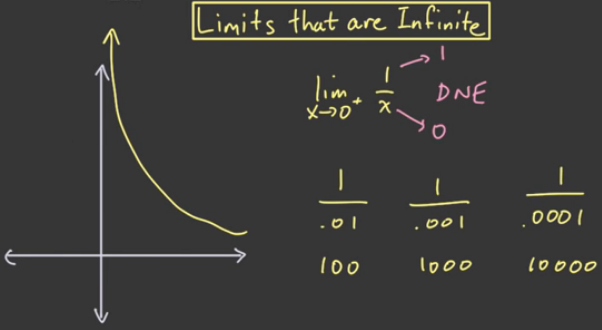 Limits that are Infinite
lim x→0⁺ 1/x
1
DNE
0
1/.01 1/.001 1/.0001
100 1000 10000